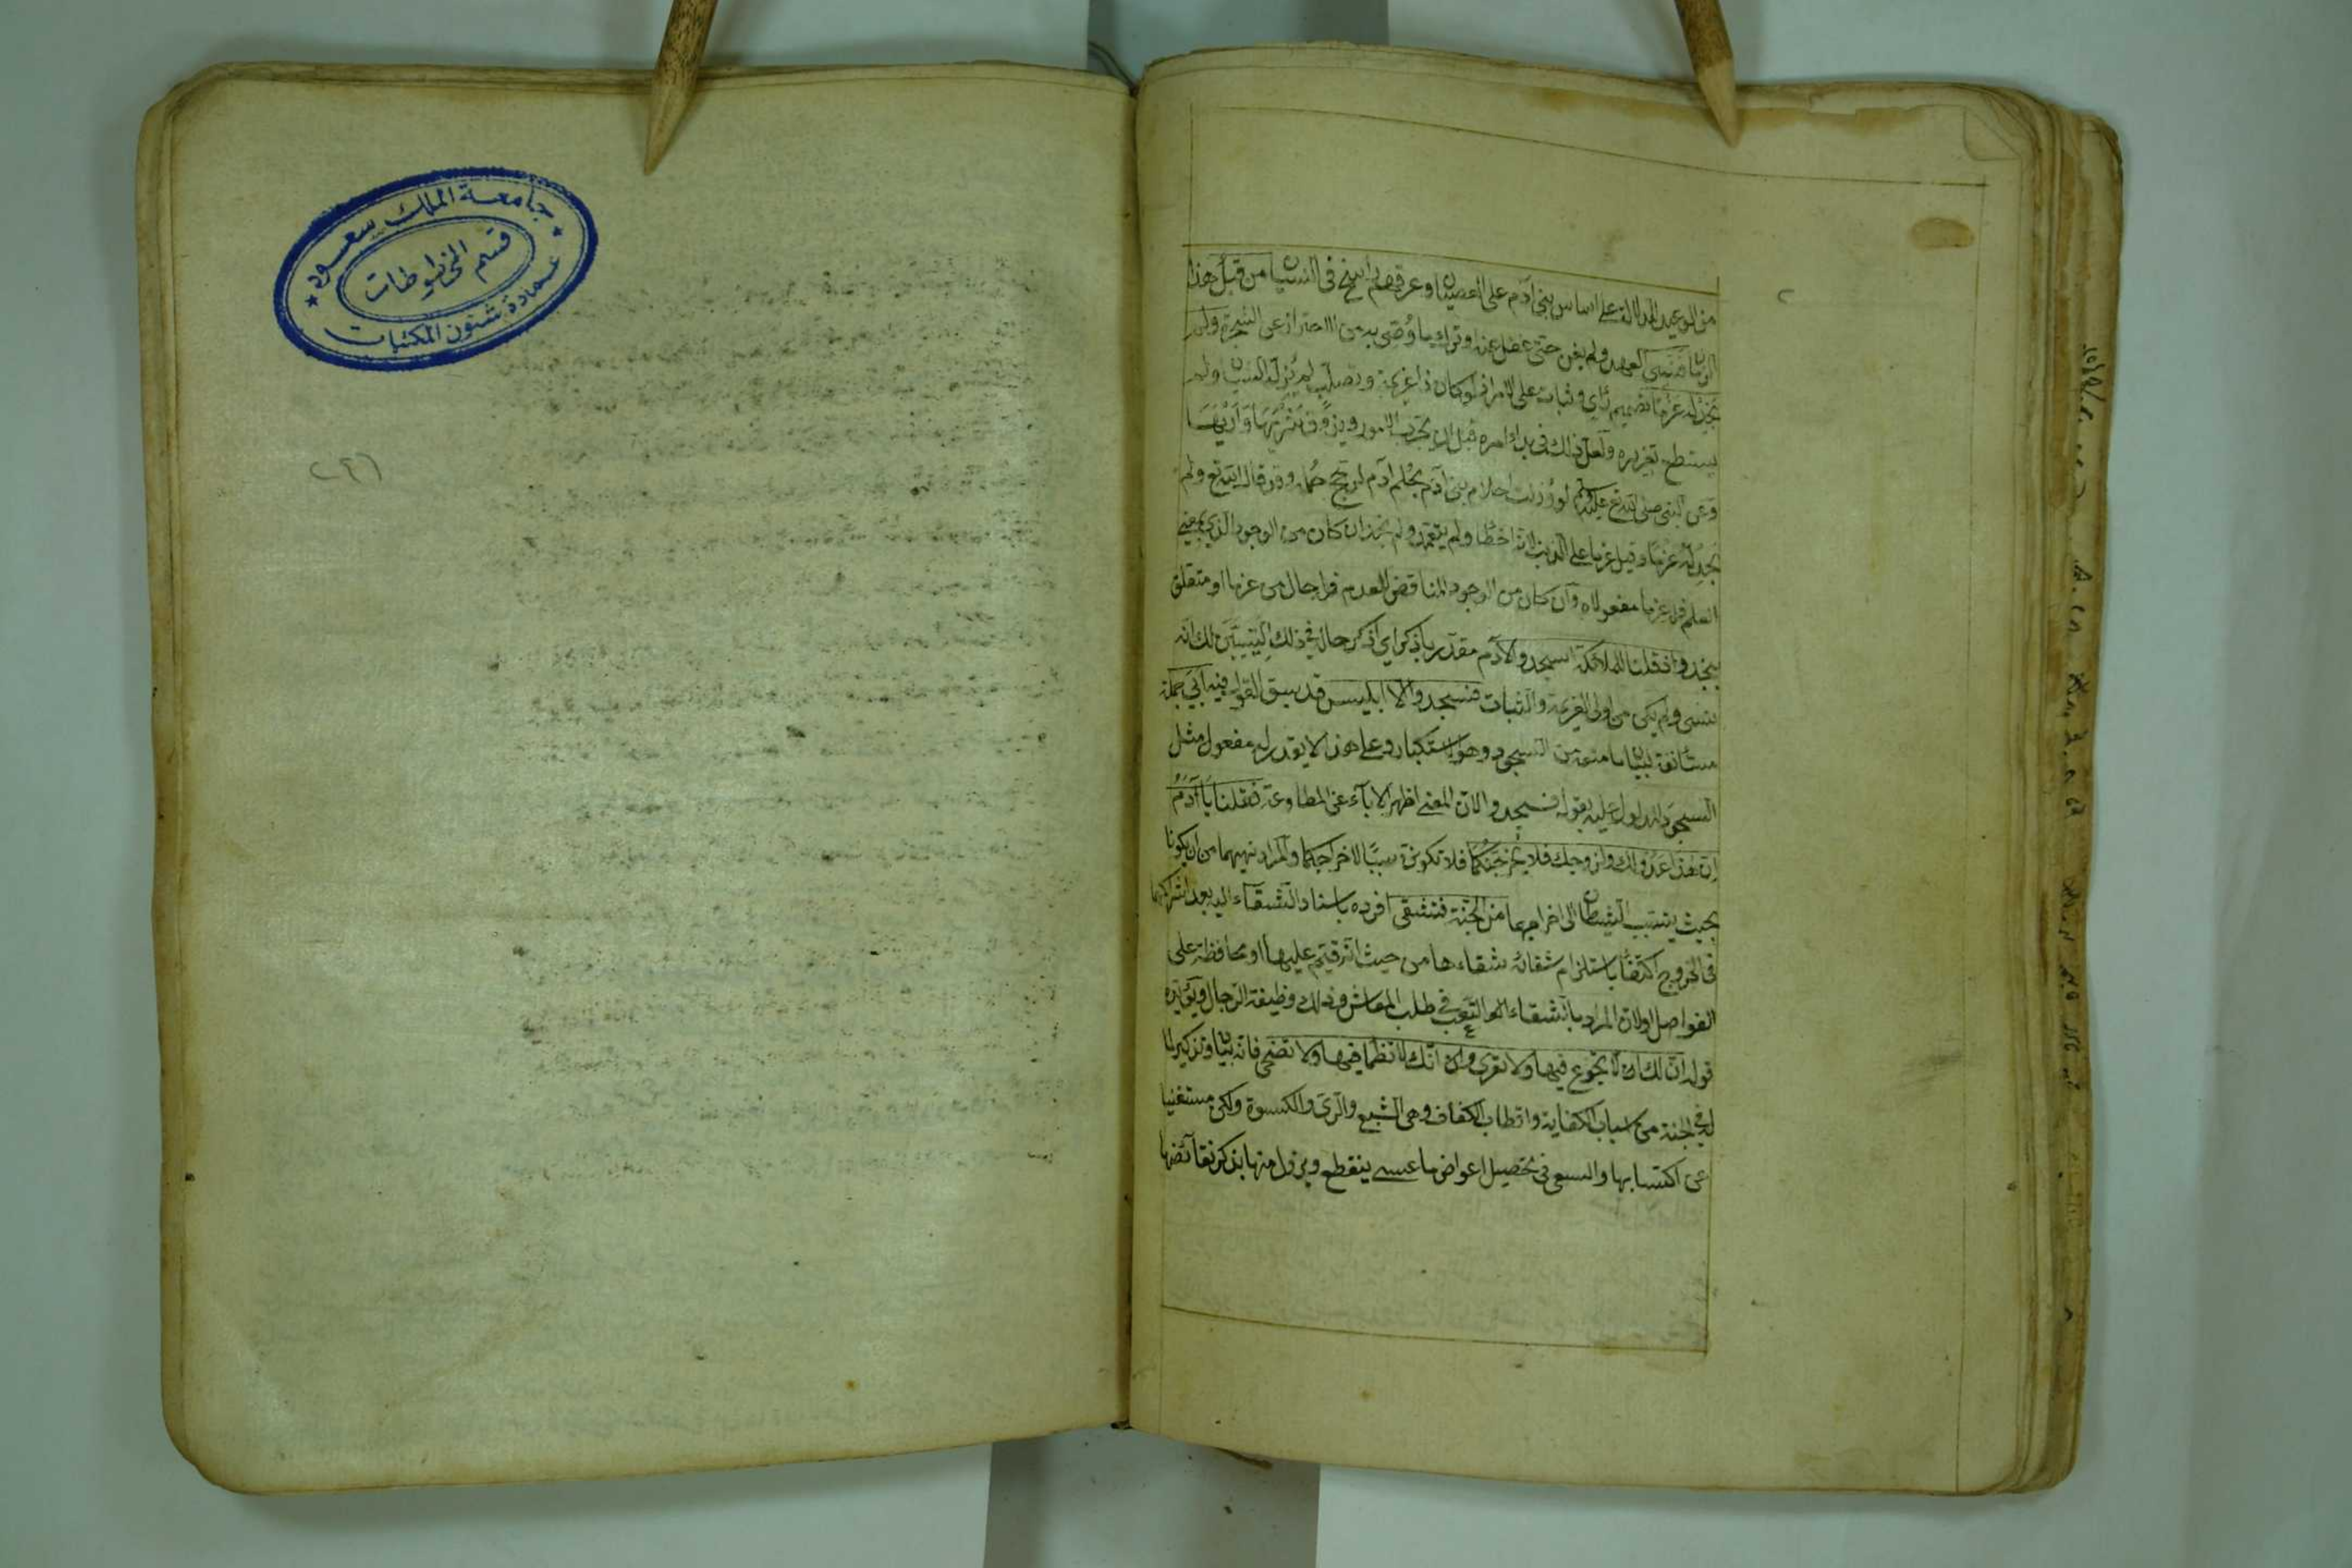 من الوعيد للدلالة على اساس بني آدم على العصيان وعرقهم راسخ في النسيان من قبل هذا
الزمان فنسي العهد ولم يعن حتى غفل عنه او ترك ما وُصّي به من الاحتراز عن الشجرة ولم
نجد له عزما تصميم رأي وثبات على الامر اذ لو كان ذا عزيمة وتصلب لم يُزله الشيطان ولم
يستطع تغريره ولعل ذلك في بدء امره قبل ان يجرّب الامور ويذوق شريها وأريها
وعن النبي صلى الله تع عليه لو وُزنت احلام بني آدم بحُلم آدم لرجح حلمه وقد قال الله تع ولم
نجد له عزما وقيل عزما على الذنب لانه اخطأ ولم يتعمد ولم نجد ان كان من الوجود الذي بمعنى
العلم فله عزما مفعولاه وان كان من الوجود المناقض للعدم فله حال من عزما او متعلق
بنجد واذ قلنا للملائكة اسجدوا لآدم مقدّر باذكر اي اذكر حاله في ذلك ليتبيّن لك انه
نسي ولم يكن من اولي العزيمة والثبات فسجدوا الا ابليس قد سبق القول فيه أبى جملة
مستأنفة لبيان ما منعه من السجود وهو الاستكبار وعلى هذا لا يقدر له مفعول مثل
السجود المدلول عليه بقوله فسجدوا لان المعنى اظهر الاباء عن المطاوعة فقلنا يا آدم
ان هذا عدو لك ولزوجك فلا يخرجنكما فلا تكونن سببا لاخراجكما والمراد نهيهما من ان يكونا
بحيث يتسبب الشيطان الى اخراجهما من الجنة فتشقى افرده باسناد الشقاء اليه بعد اشتراكهما
في الخروج اكتفاء باستلزام شقائه شقاءها من حيث انه قيّم عليها او محافظة على
الفواصل او لان المراد بالشقاء هو التعب في طلب المعاش وذلك وظيفة الرجال ويؤيده
قوله ان لك ان لا تجوع فيها ولا تعرى وانك لا تظمأ فيها ولا تضحى فانه بيان وتذكير لما
له في الجنة من اسباب الكفاية واقطاب الكفاف وهي الشبع والري والكسوة ولكن مستغنيا
عن اكتسابها والسعي في تحصيل اعواض ما عسى ينقطع ويزول منها بذكر نقائضها
٢
جامعة الملك سعود
قسم المخطوطات
عمادة شئون المكتبات